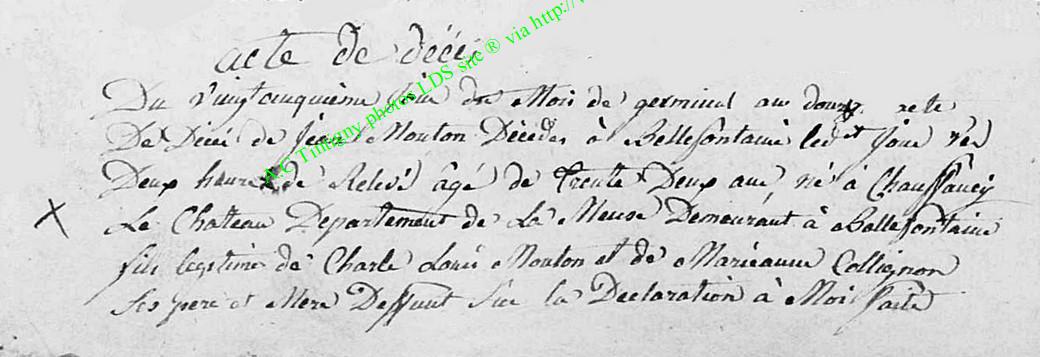 acte de décé
Du vingtcinquieme Jour du Mois de germinal an douze acte
De Décé de Jean Mouton Décédé à Bellefontaine ledit Jour ver
Deux heure de Relevé âgé de trente Deux ans né à Chauffancy
Le Chateau Departement de La Meuse Demeurant à Bellefontaine
fils legitime de Charle Louis Mouton et de Marieanne Collignon
Ses pere et Mere Deffunt Sur la Declaration à Moi faite
A.C Tintigny photos LDS site ® via http://